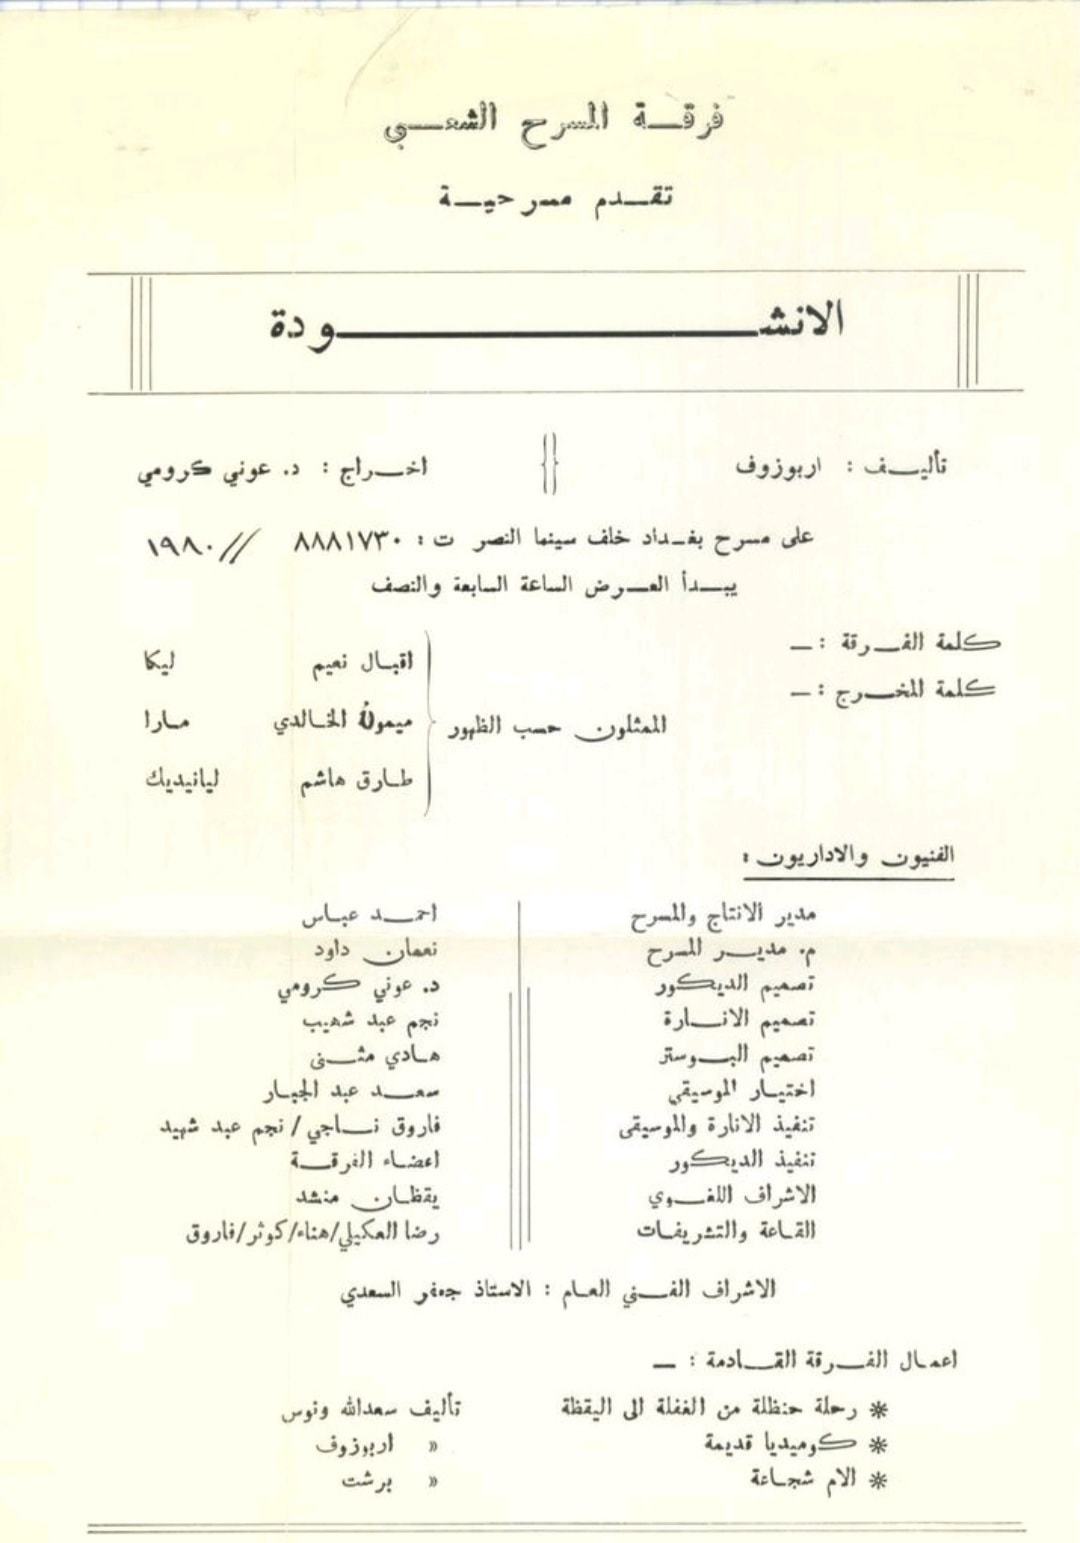 فرقة المسرح الشعبي
تقدم مسرحية
الانشودة
تأليف : اربوزوف
اخراج : د. عوني كرومي
على مسرح بغداد خلف سينما النصر ت : ٨٨٨١٧٣٠ // ١٩٨٠
يبدأ العرض الساعة السابعة والنصف
كلمة الفرقة : ــ
كلمة المخرج : ــ
الممثلون حسب الظهور
اقبال نعيم ليكا
ميمون الخالدي مارا
طارق هاشم ليانيديك
الفنيون والاداريون :
مدير الانتاج والمسرح احمد عباس
م. مدير المسرح نعمان داود
تصميم الديكور د. عوني كرومي
تصميم الانارة نجم عبد شهيب
تصميم البوستر هادي مثنى
اختيار الموسيقي سعد عبد الجبار
تنفيذ الانارة والموسيقى فاروق ناجي / نجم عبد شهيد
تنفيذ الديكور اعضاء الفرقة
الاشراف اللغوي يقظان منشد
القاعة والتشريفات رضا العكيلي/هناء/كوثر/فاروق
الاشراف الفني العام : الاستاذ جعفر السعدي
اعمال الفرقة القادمة : ــ
* رحلة حنظلة من الغفلة الى اليقظة تأليف سعدالله ونوس
* كوميديا قديمة » اربوزوف
* الام شجاعة » برشت